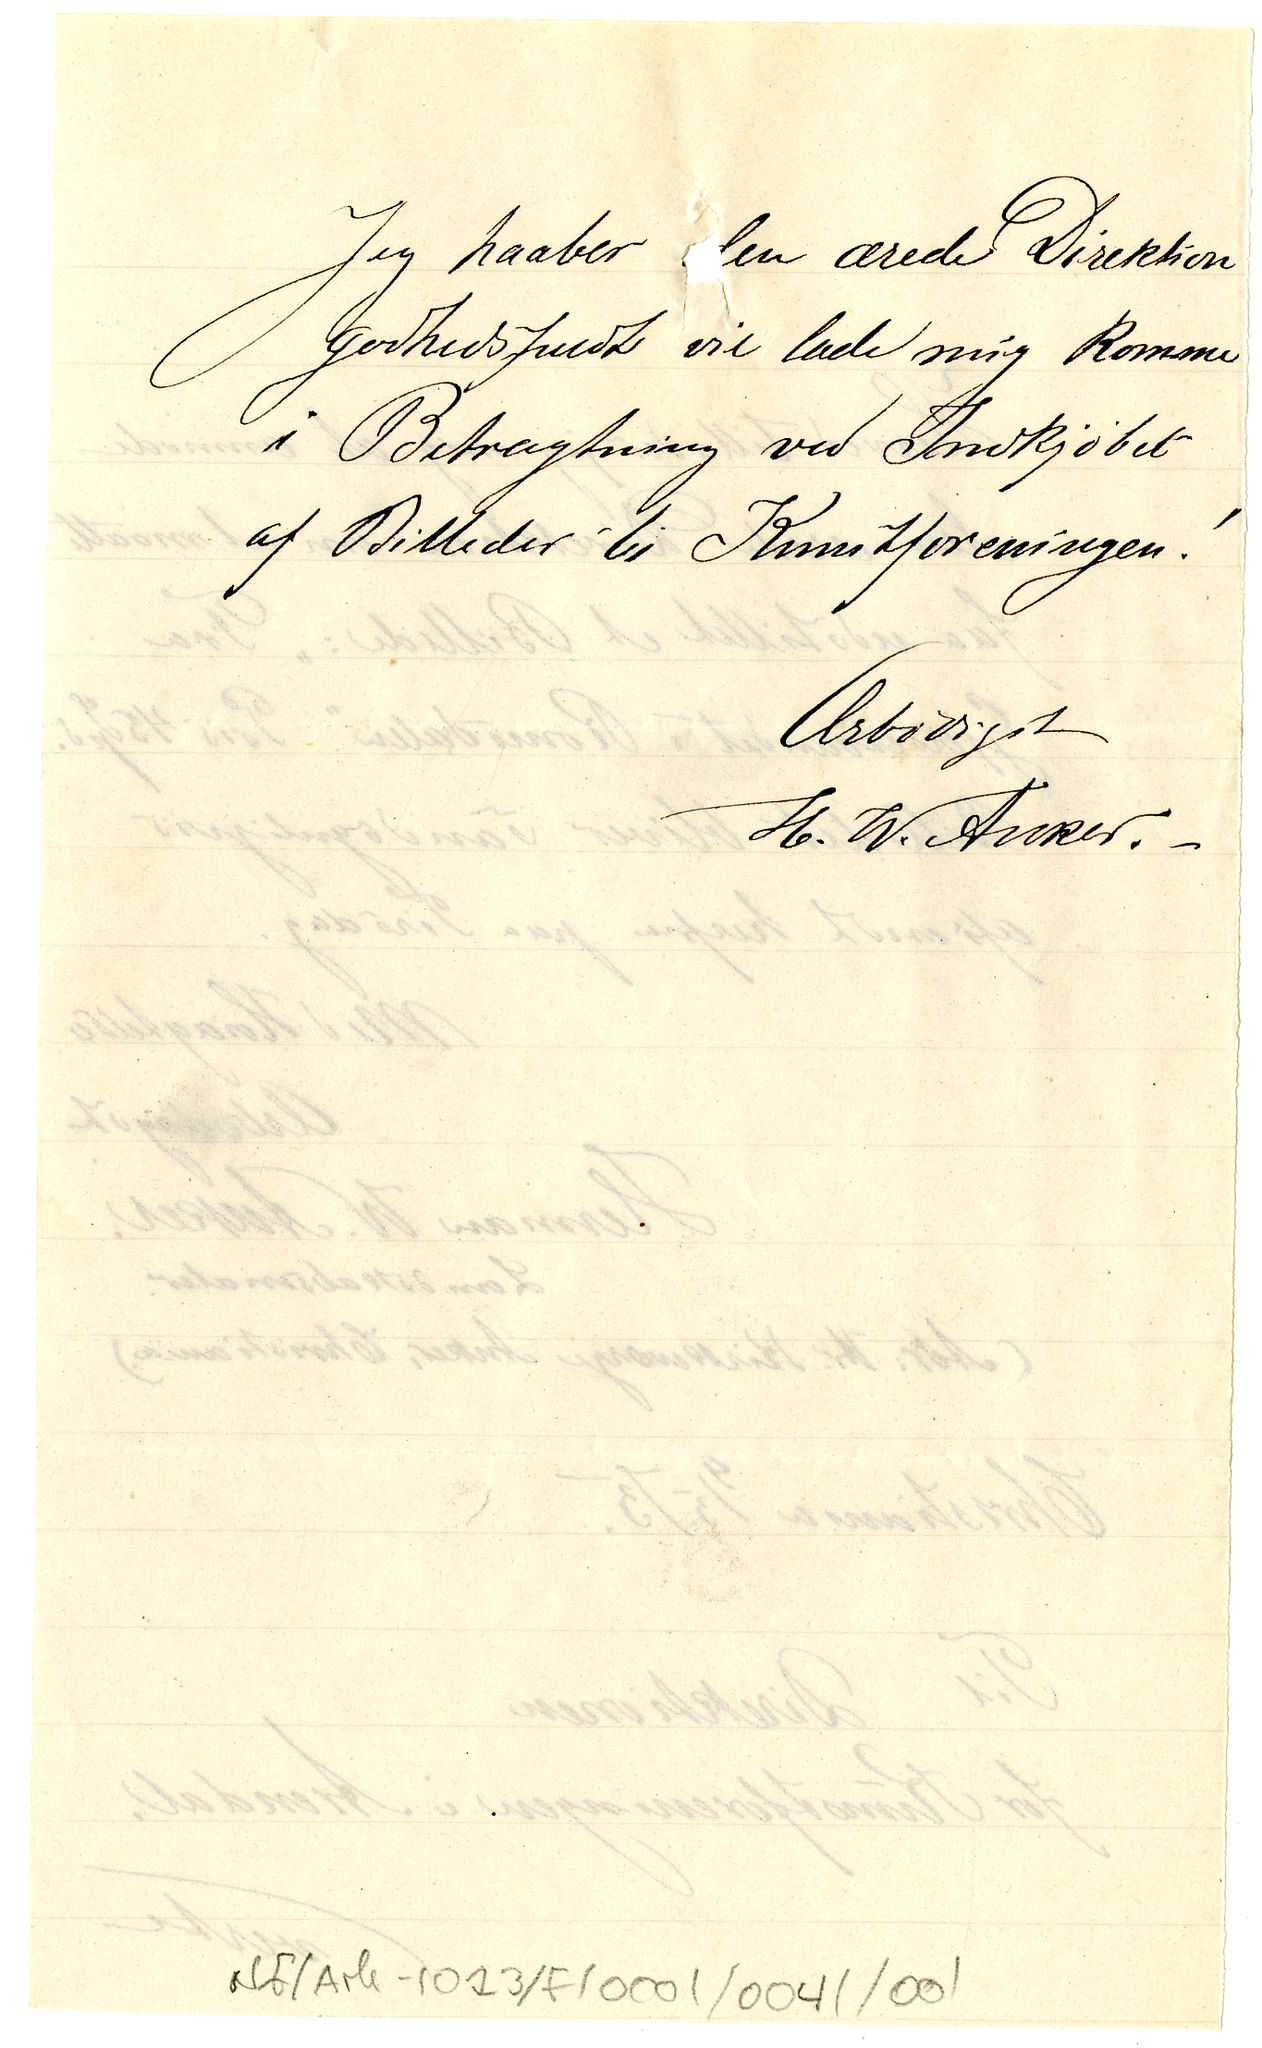 Jeg haaber den ærede Direktion
godhedsfuldt vil lade mig komme
i Betragtning ved Indkjøbet
af Billeder til Kunstforeningen!
Ærbødigst
H. W. Anker. –
NF/Ark-1023/F/0001/0041/001